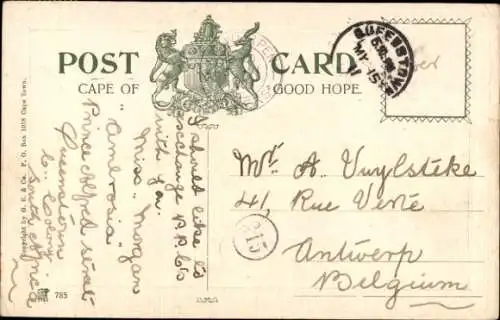 POST CARD
CAPE OF GOOD HOPE.
QUEENSTOWN
MY 15
I should like to
exchange P.P.Cs
with you.
Miss Morgan
"Ambrosia"
Prince Alfred Street
Queenstown
Colony
South Africa
Mr. A. Vuylsteke
41, Rue Verte
Antwerp
Belgium
315
Copyright by G. B. & Co. P. O. Box 1018 Cape Town.
785